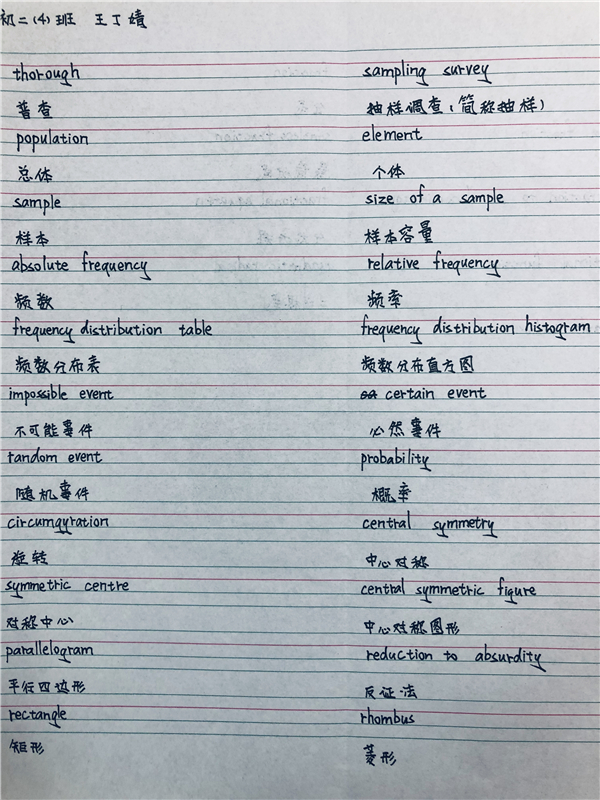 初二(4)班 王丁婧
thorough sampling survey
普查 抽样调查(简称抽样)
population element
总体 个体
sample size of a sample
样本 样本容量
absolute frequency relative frequency
频数 频率
frequency distribution table frequency distribution histogram
频数分布表 频数分布直方图
impossible event certain event
不可能事件 必然事件
tandom event probability
随机事件 概率
circumgyration central symmetry
旋转 中心对称
symmetric centre central symmetric figure
对称中心 中心对称图形
parallelogram reduction to absurdity
平行四边形 反证法
rectangle rhombus
矩形 菱形